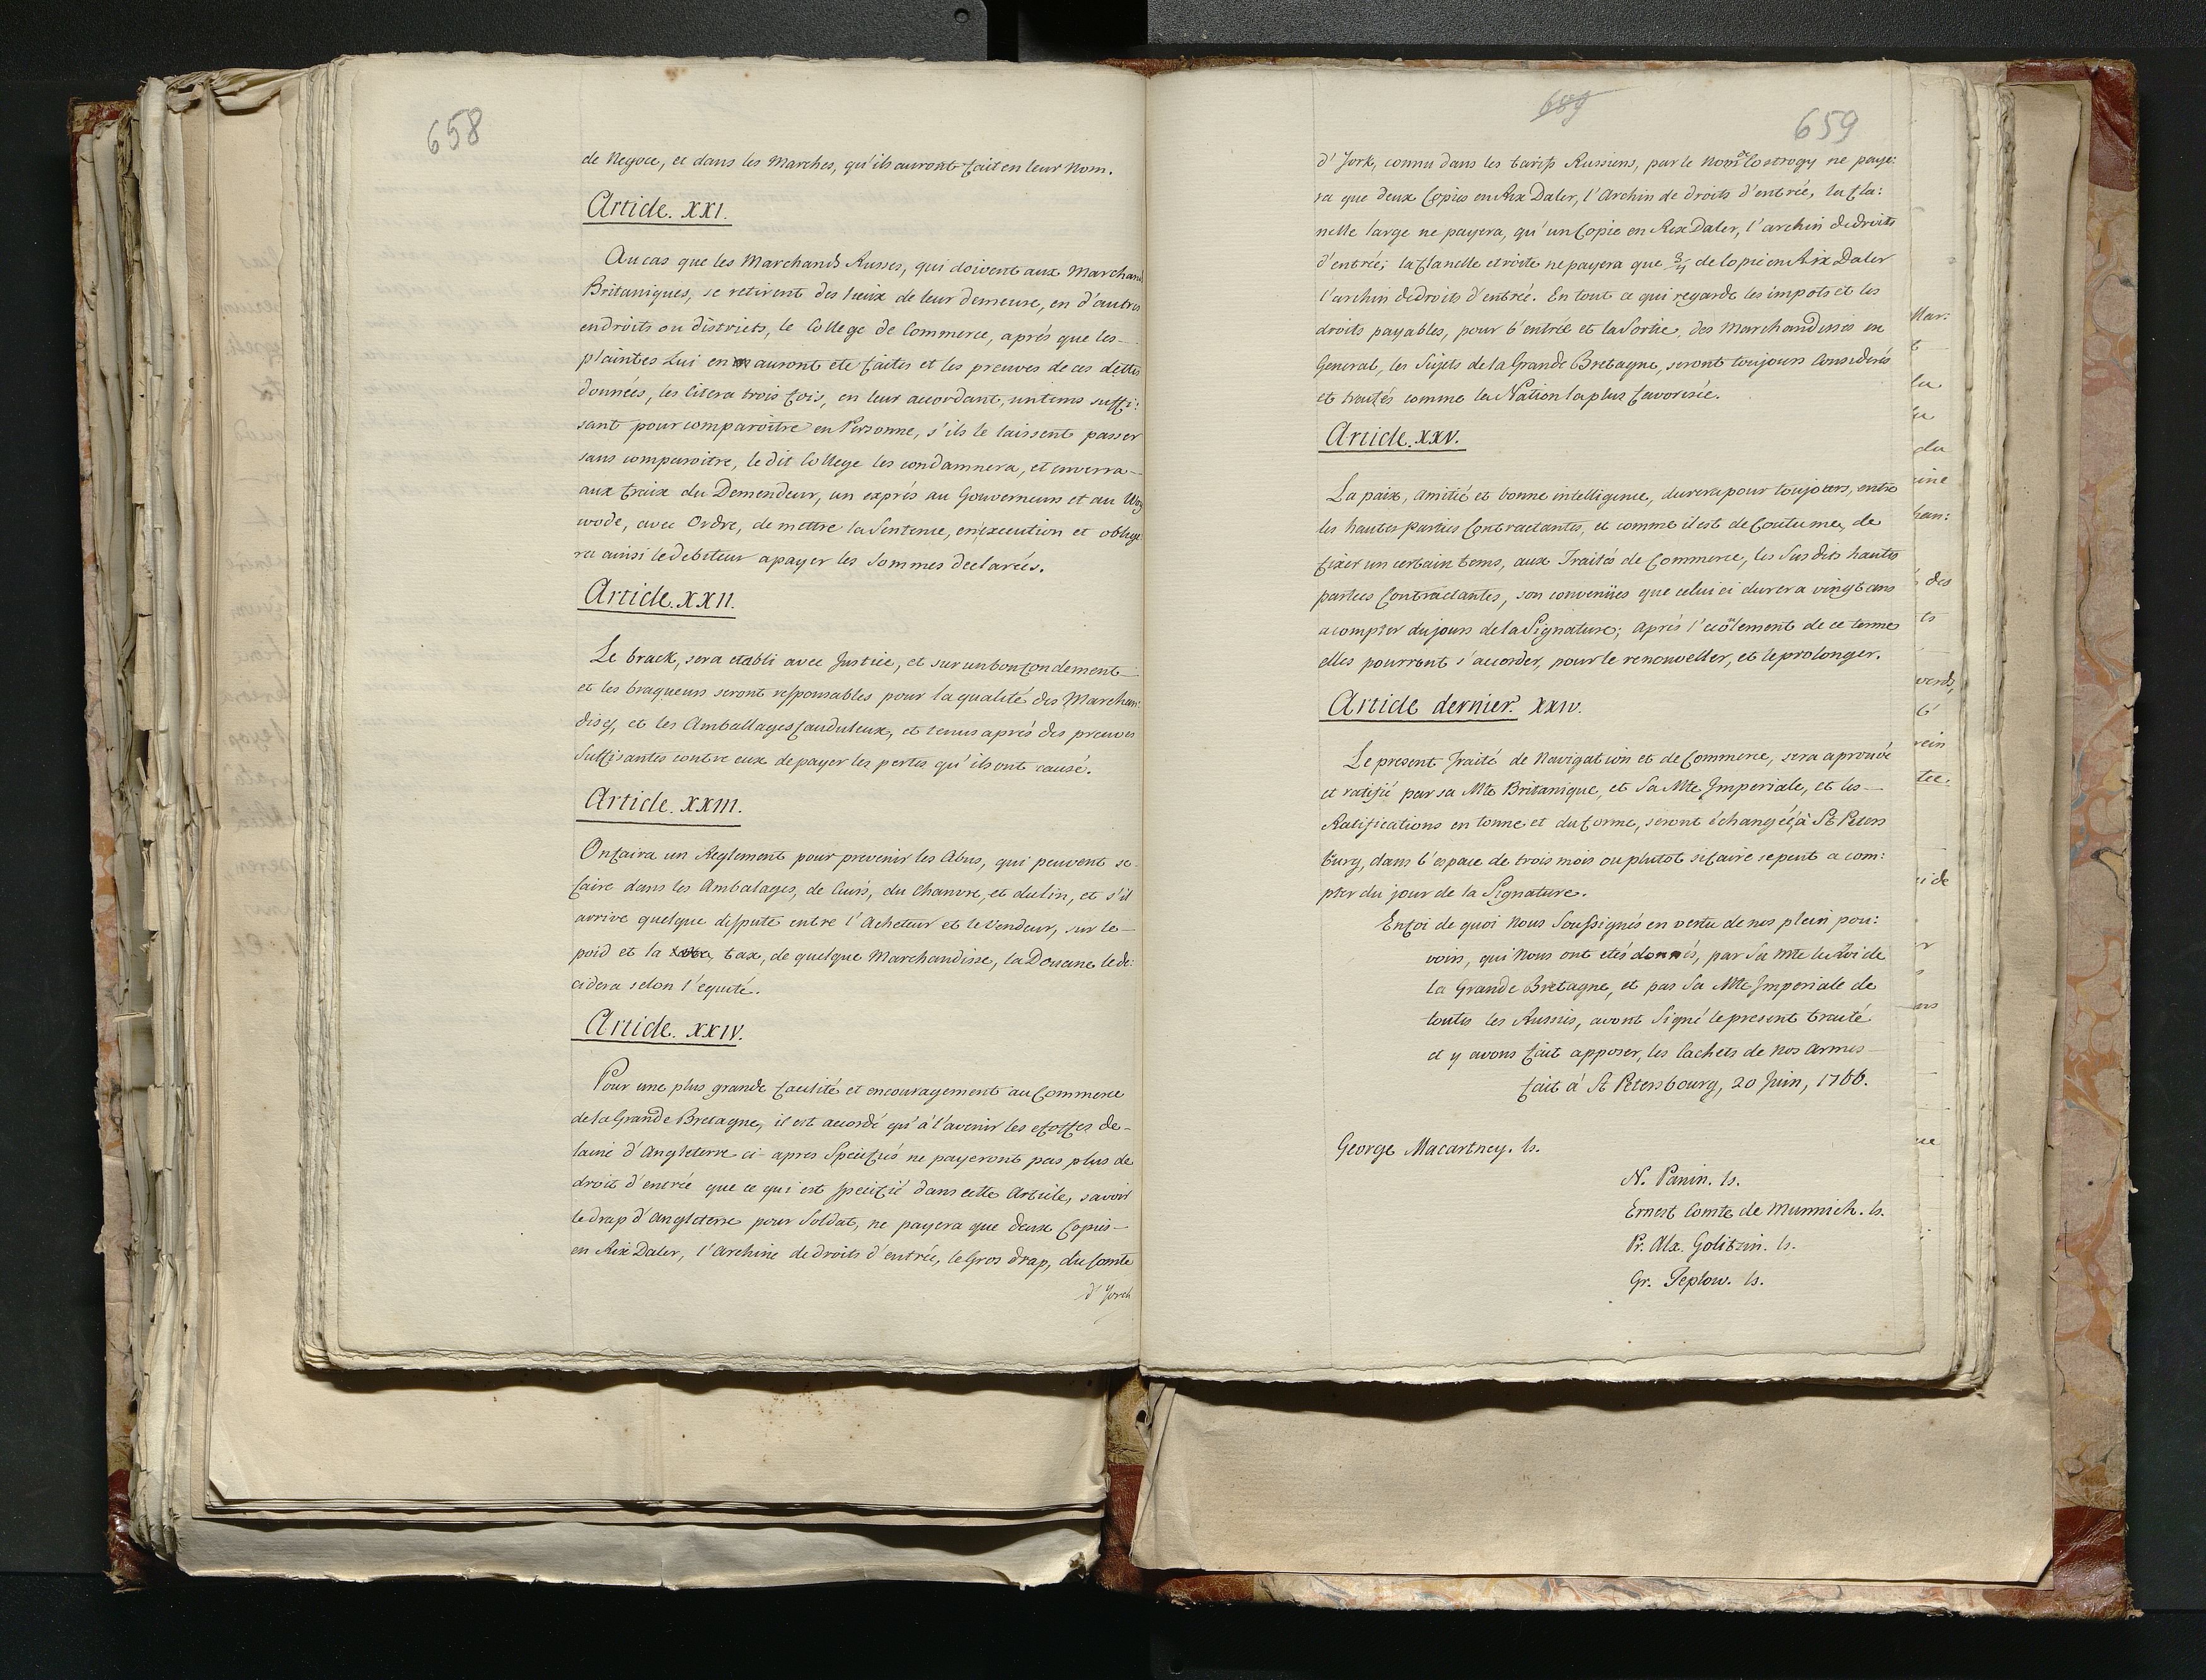 658
de Negoce, et dans les Marches, qu'ils auront fait en leur Nom.
Article. XXI.
Au cas que les Marchands Russes, qui doivent aux Marchands
Britaniques, se retirent des lieux de leur demeure, en d'autres
endroits ou districts, le College de Commerce, aprés que les
plaintes Lui en auront eté faites et les preuves de ces dettes
données, les Citera trois fois, en leur accordant, un tems suffi:
sant pour comparoitre en Personne, s'ils le laissent passer
sans comparoitre, le dit College les condamnera, et enverra
aux fraix du Demendeur, un exprés au Gouverneurs et au Woy
wode, avec Ordre, de mettre la Sentence, en execution et oblige
ra ainsi le debiteur a payer les Sommes declarées.
Article. XXII.
Le brack, sera etabli avec Justice, et sur un bon fondement
et les braqueurs seront responsables pour la qualité des Marchan:
dises, et les Amballages fauduleux, et tenus aprés des preuves
Suffisantes contre eux de payer les pertes qu'ils ont causé.
Article. XXIII.
On faira un Reglement pour prevenir les Abus, qui peuvent se
faire dans les Ambalages, de Cuirs, du Chanvre, et du lin, et s'il
arrive quelque dispute entre l'Acheteur et le Vendeur, sur le
poid et la tax, de quelque Marchandise, la Douane le de:
cidera selon l'equité.
Article. XXIV.
Pour une plus grande facilité et encouragement au Commerce
de la Grande Bretagne, il est accordé qu'à l'avenir les etoffes de
laine d'Angleterre ci-apres Specifiés ne payeront pas plus de
droit d'entrée que ce qui est specifié dans cette Article, savoir
le drap d'Angleterre pour Soldat, ne payera que deux Copies
en Rix Daler, l'Archine de droits d'entrée, le Gros drap, du Comte
d'Yorck
689
659
d'York, connu dans les tarifs Russiens, par le Nom de Costrogy ne paye:
ra que deux Copies en Rix Daler, l'Archin de droits d'entrée, la fla:
nelle large ne payera, qu'un Copie en Rix Daler, l'archin de droits
d'entrée; la flanelle etroite ne payera que 3/4 de Copie en Rix Daler
l'archin de droits d'entrée. En tout ce qui regarde les impots et les
droits payables, pour l'entrée et la Sortie, des Marchandises en
General, les Sujets de la Grande Bretagne, seront toujours Considerés
et traités comme la Nation la plus favorisée.
Article. XXV.
La paix, amitié et bonne intelligence, durera pour toujours, entre
les hautes parties Contractantes, et comme il est de Coutume, de
fixer un certain tems, aux Traités de Commerce, les Sus dits hautes
parties Contractantes, son convenües que celui ci durera vingt ans
a compter du jour de la Signature; Aprés l'ecôlement de ce terme
elles pourront s'accorder, pour le renouveller, et le prolonger.
Article dernier. XXIV.
Le present Traité de Navigation et de Commerce, sera aprouvé
et ratifié par sa Mte Britanique, et Sa Mte Imperiale, et les
Ratifications en bonne et du forme, seront échangéé, à St Peters
burg, dans l'espace de trois mois ou plutot si faire se peut a com:
pter du jour de la Signature.
En foi de quoi Nous Soussignés en vertu de nos plein pou:
voirs, qui Nous ont etés donnés, par Sa Mte le Roi de
la Grande Bretagne, et par Sa Mte Imperiale de
toutes les Russies, avont Signé le present traité
et y avons fait apposer, les Cachets de Nos Armes
fait à St Petersbourg, 20 Juin, 1766.
George Macartney. ls.
N. Panin. ls.
Ernest Comte de Munnich. ls.
Pr. Alx. Golitzin. ls.
Gr. Teplow. ls.